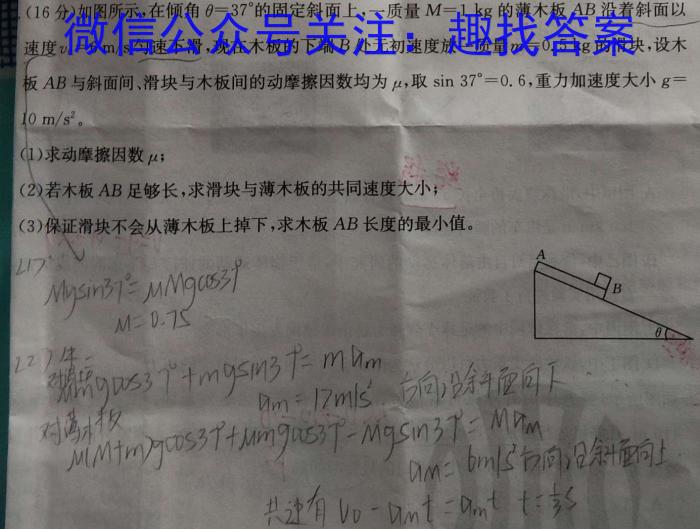 (16分)如图所示,在倾角θ=37°的固定斜面上,一质量M=1 kg的薄木板AB沿着斜面以
微信公众号关注:趣找答案
速度 m/s匀速下滑,现在木板的下端B处无初速度放一质量m=0.5 kg的滑块,设木
板AB与斜面间、滑块与木板间的动摩擦因数均为μ,取sin 37°=0.6,重力加速度大小g=
10 m/s²。
(1)求动摩擦因数μ;
(2)若木板AB足够长,求滑块与薄木板的共同速度大小;
(3)保证滑块不会从薄木板上掉下,求木板AB长度的最小值。
A
B
θ
Mgsin37°=μMgcos37°
μ=0.75
对滑块
μmgcos37°+mgsin37°=mam
am=12m/s² 方向沿斜面向下
对薄木板
μ(M+m)gcos37°+μmgcos37°-Mgsin37°=MaM
aM=6m/s²方向沿斜面向上
共速有 V0-aMt=amt t=⅓s